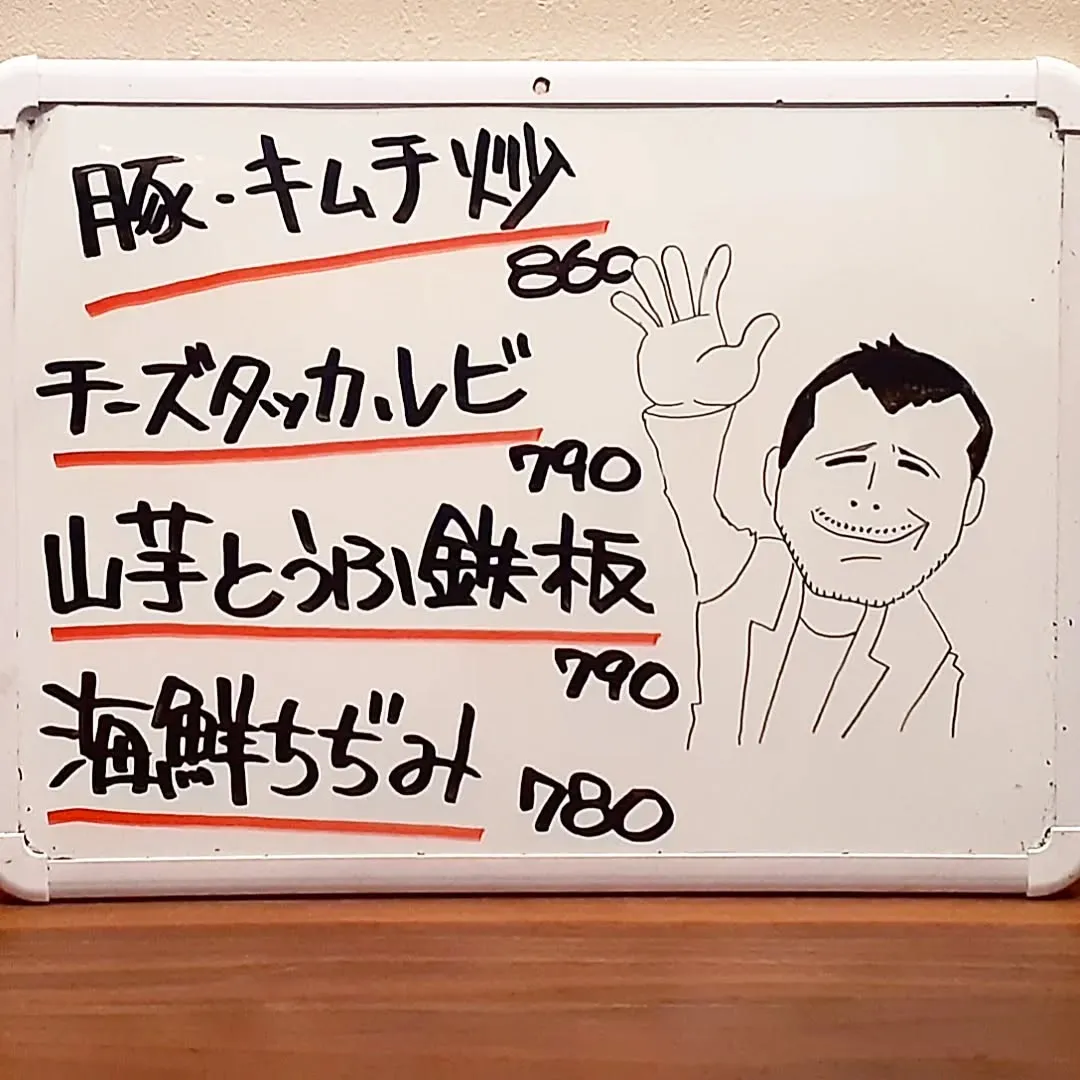 豚・キムチ炒
860
チーズタッカルビ
790
山芋とうふ鉄板
790
海鮮ちぢみ
780